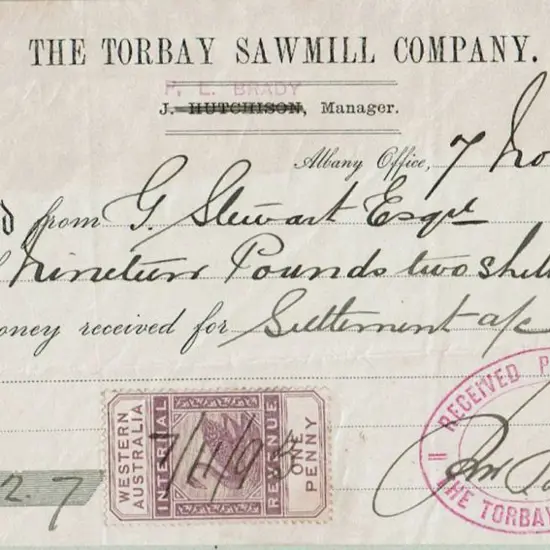 THE TORBAY SAWMILL COMPANY.
P. L. BRADY
J. HUTCHISON, Manager.
Albany Office, 7 No
d from G. Stewart Esqre
Nineteen Pounds two shil
oney received for Settlement a/c
WESTERN AUSTRALIA
INTERNAL REVENUE
ONE PENNY
7/11/93
2.7
RECEIVED P
THE TORBAY